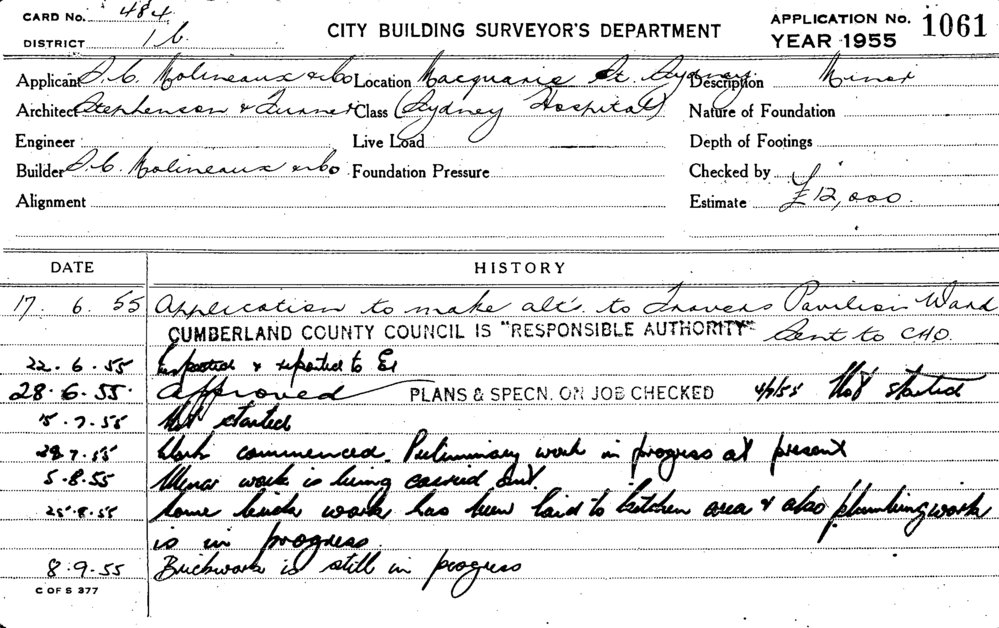 CARD No. 484
DISTRICT 1b
CITY BUILDING SURVEYOR'S DEPARTMENT
APPLICATION No. 1061
YEAR 1955
Applicant S. C. Molineaux & Co Location Macquarie St. Sydney Description Minor
Architect Stephenson & Turner Class (Sydney Hospital) Nature of Foundation
Engineer Live Load Depth of Footings
Builder S. C. Molineaux & Co Foundation Pressure Checked by
Alignment Estimate £12,000.
DATE HISTORY
17. 6. 55 Application to make alt's. to Travers Pavilion Ward
CUMBERLAND COUNTY COUNCIL IS "RESPONSIBLE AUTHORITY" Sent to CHO.
22. 6. 55 Inspected & reported to
28. 6. 55. Approved PLANS & SPECN. ON JOB CHECKED 4/7/55 started
5. 7. 55 Not started
29.7.55 Work commenced. Preliminary work in progress at present
5.8.55 Minor work is being carried out.
25.8.55 Some brick work has been laid to kitchen area & also plumbing work
is in progress.
8.9.55 Brickwork is still in progress
C OF S 377